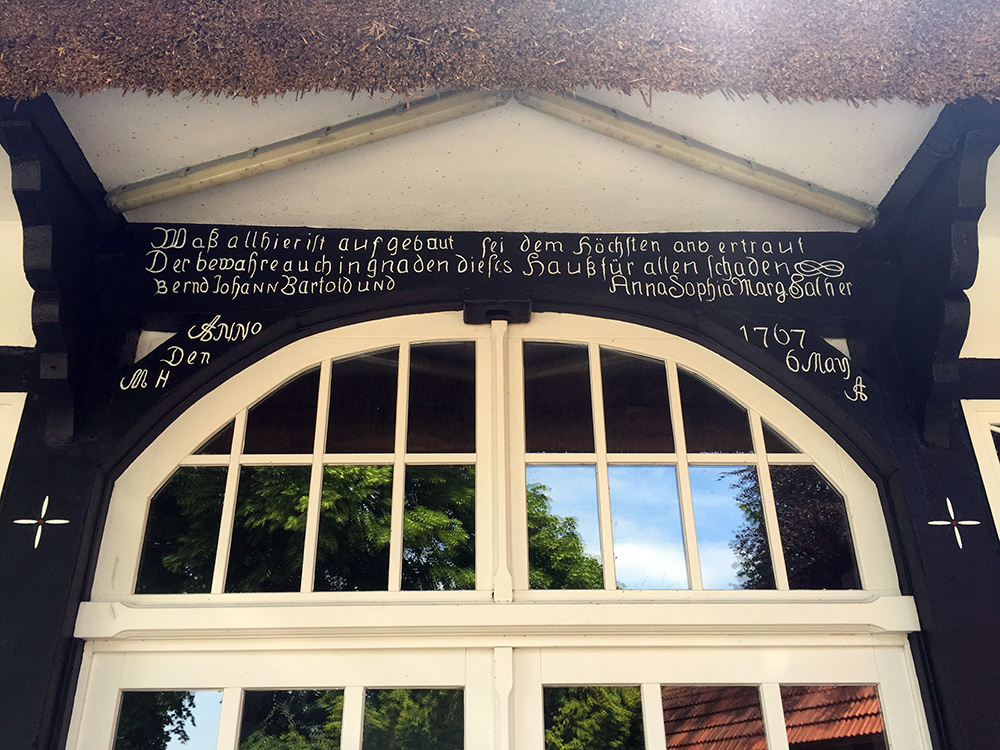 Waß allhier ist aufgebaut sei dem Höchsten anvertraut
Der bewahre auch in gnaden dieses Hauß für allen schaden
Bernd Johann Bartold und Anna Sophia Marg. Salher
ANNO 1767
Den 6 May
M H A